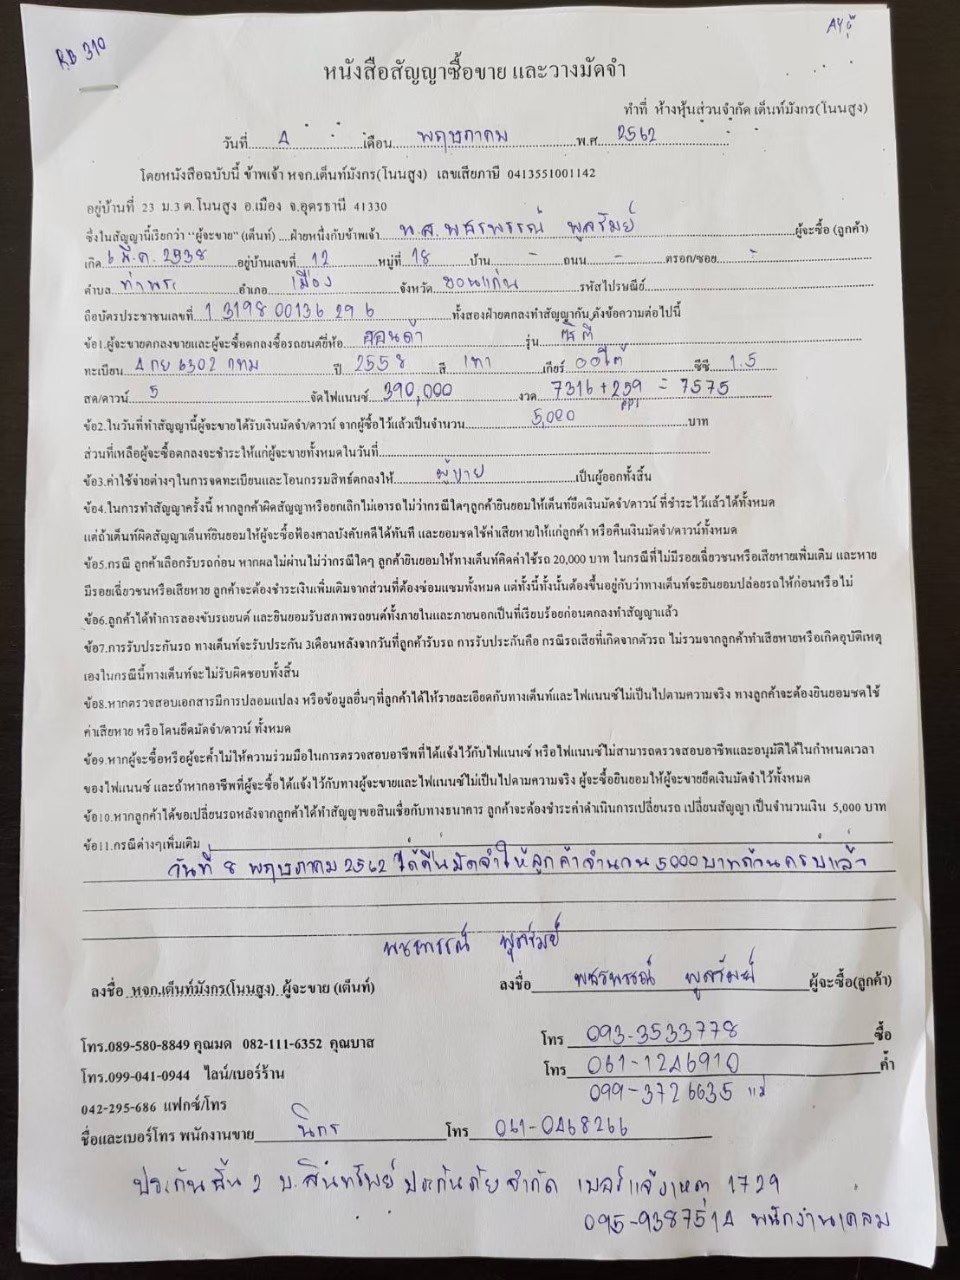 RB 310
หนังสือสัญญาซื้อขาย และวางมัดจำ
ทำที่ ห้างหุ้นส่วนจำกัด เต็นท์มังกร(โนนสูง)
วันที่ 4 เดือน พฤษภาคม พ.ศ. 2562
โดยหนังสือฉบับนี้ ข้าพเจ้า หจก.เต็นท์มังกร(โนนสูง) เลขเสียภาษี 0413551001142
อยู่บ้านที่ 23 ม.3 ต.โนนสูง อ.เมือง จ.อุดรธานี 41330
ซึ่งในสัญญานี้เรียกว่า "ผู้จะขาย" (เต็นท์) ....ฝ่ายหนึ่งกับข้าพเจ้า น.ส.พสรพรรณ์ พูลรัมย์ ผู้จะซื้อ (ลูกค้า)
เกิด 6 มี.ค. 2538 อยู่บ้านเลขที่ 12 หมู่ที่ 18 บ้าน - ถนน - ตรอก/ซอย -
ตำบล ท่าพระ อำเภอ เมือง จังหวัด ขอนแก่น รหัสไปรษณีย์
ถือบัตรประชาชนเลขที่ 1 3198 00136 29 6 ทั้งสองฝ่ายตกลงทำสัญญากัน ดังข้อความต่อไปนี้
ข้อ1.ผู้จะขายตกลงขายและผู้จะซื้อตกลงซื้อรถยนต์ยี่ห้อ ฮอนด้า รุ่น ซิตี้
ทะเบียน 4 กย 6302 กทม ปี 2558 สี เทา เกียร์ ออโต้ ซีซี 1.5
สด/ดาวน์ 5 จัดไฟแนนซ์ 390,000 งวด 7316+259 = 7575
PPI
ข้อ2.ในวันที่ทำสัญญานี้ผู้จะขายได้รับเงินมัดจำ/ดาวน์ จากผู้ซื้อไว้แล้วเป็นจำนวน 5,000 บาท
ส่วนที่เหลือผู้จะซื้อตกลงจะชำระให้แก่ผู้จะขายทั้งหมดในวันที่
ข้อ3.ค่าใช้จ่ายต่างๆในการจดทะเบียนและโอนกรรมสิทธิ์ตกลงให้ ผู้ขาย เป็นผู้ออกทั้งสิ้น
ข้อ4.ในการทำสัญญาครั้งนี้ หากลูกค้าผิดสัญญาหรือยกเลิกไม่เอารถไม่ว่ากรณีใดๆลูกค้ายินยอมให้เต็นท์ยึดเงินมัดจำ/ดาวน์ ที่ชำระไว้แล้วได้ทั้งหมด
แต่ถ้าเต็นท์ผิดสัญญาเต็นท์ยินยอมให้ผู้จะซื้อฟ้องศาลบังคับคดีได้ทันที และยอมชดใช้ค่าเสียหายให้แก่ลูกค้า หรือคืนเงินมัดจำ/ดาวน์ทั้งหมด
ข้อ5.กรณี ลูกค้าเลือกรับรถก่อน หากผลไม่ผ่านไม่ว่ากรณีใดๆ ลูกค้ายินยอมให้ทางเต็นท์คิดค่าใช้รถ 20,000 บาท ในกรณีที่ไม่มีรอยเฉี่ยวชนหรือเสียหายเพิ่มเติม และหาย
มีรอยเฉี่ยวชนหรือเสียหาย ลูกค้าจะต้องชำระเงินเพิ่มเติมจากส่วนที่ต้องซ่อมแซมทั้งหมด แต่ทั้งนี้ทั้งนั้นต้องขึ้นอยู่กับว่าทางเต็นท์จะยินยอมปล่อยรถให้ก่อนหรือไม่
ข้อ6.ลูกค้าได้ทำการลองขับรถยนต์ และยินยอมรับสภาพรถยนต์ทั้งภายในและภายนอกเป็นที่เรียบร้อยก่อนตกลงทำสัญญาแล้ว
ข้อ7.การรับประกันรถ ทางเต็นท์จะรับประกัน 3เดือนหลังจากวันที่ลูกค้ารับรถ การรับประกันคือ กรณีรถเสียที่เกิดจากตัวรถ ไม่รวมจากลูกค้าทำเสียหายหรือเกิดอุบัติเหตุ
เองในกรณีนี้ทางเต็นท์จะไม่รับผิดชอบทั้งสิ้น
ข้อ8.หากตรวจสอบเอกสารมีการปลอมแปลง หรือข้อมูลอื่นๆที่ลูกค้าได้ให้รายละเอียดกับทางเต็นท์และไฟแนนซ์ไม่เป็นไปตามความจริง ทางลูกค้าจะต้องยินยอมชดใช้
ค่าเสียหาย หรือโดนยึดมัดจำ/ดาวน์ ทั้งหมด
ข้อ9.หากผู้จะซื้อหรือผู้จะค้ำไม่ให้ความร่วมมือในการตรวจสอบอาชีพที่ได้แจ้งไว้กับไฟแนนซ์ หรือไฟแนนซ์ไม่สามารถตรวจสอบอาชีพและอนุมัติได้ในกำหนดเวลา
ของไฟแนนซ์ และถ้าหากอาชีพที่ผู้จะซื้อได้แจ้งไว้กับทางผู้จะขายและไฟแนนซ์ไม่เป็นไปตามความจริง ผู้จะซื้อยินยอมให้ผู้จะขายยึดเงินมัดจำไว้ทั้งหมด
ข้อ10.หากลูกค้าได้ขอเปลี่ยนรถหลังจากลูกค้าได้ทำสัญญาขอสินเชื่อกับทางธนาคาร ลูกค้าจะต้องชำระค่าดำเนินการเปลี่ยนรถ เปลี่ยนสัญญา เป็นจำนวนเงิน 5,000 บาท
ข้อ11.กรณีต่างๆเพิ่มเติม
วันที่ 8 พฤษภาคม 2562 ได้คืนมัดจำให้ลูกค้าจำนวน 5000 บาทถ้วนครบแล้ว
พสรพรรณ์ พูลรัมย์
ลงชื่อ หจก.เต็นท์มังกร(โนนสูง) ผู้จะขาย (เต็นท์) ลงชื่อ พสรพรรณ์ พูลรัมย์ ผู้จะซื้อ(ลูกค้า)
โทร 093-3533778 ซื้อ
โทร.089-580-8849 คุณมด 082-111-6352 คุณบาส
โทร 061-1246910 ค้ำ
โทร.099-041-0944 ไลน์/เบอร์ร้าน
099-3726635 แม่
042-295-686 แฟกซ์/โทร
ชื่อและเบอร์โทร พนักงานขาย นิกร โทร 061-0468266
ประกันชั้น 2 บ.สินทรัพย์ประกันภัย จำกัด เบอร์แจ้งเหตุ 1729
095-9387514 พนักงานเคลม